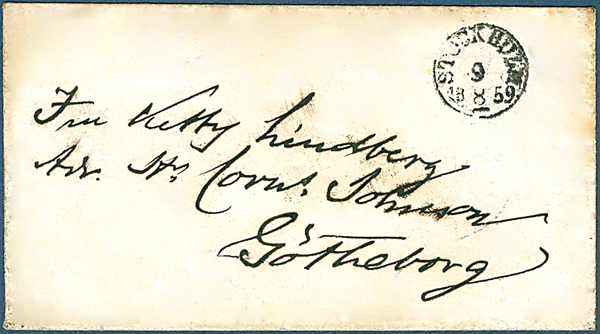 STOCKHOLM
9
18 8 59
Fru Ketty Lindberg
Adr. Hr. Corns. Johnson
Götheborg